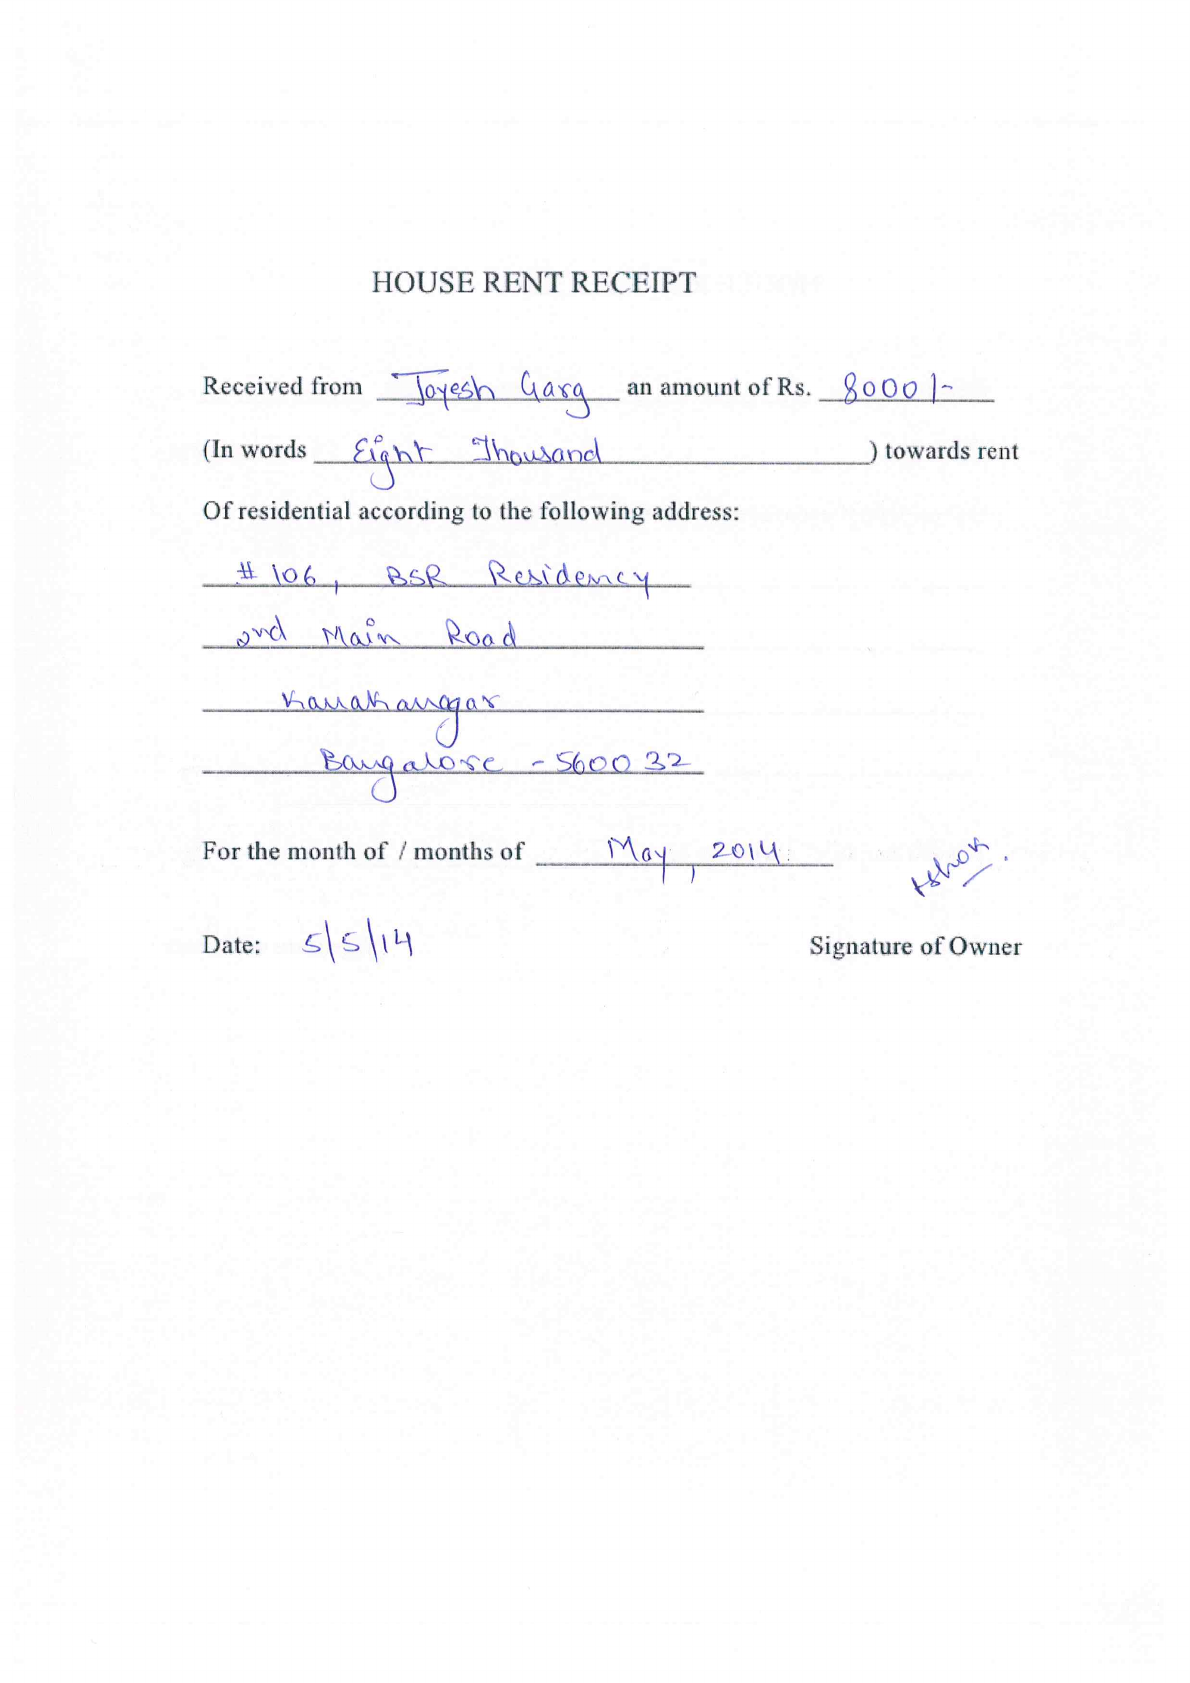 HOUSE RENT RECEIPT
Received from Jayesh Garg an amount of Rs. 8000/-
(In words Eight Thousand ) towards rent
Of residential according to the following address:
# 106, BSR Residency
2nd Main Road
Kanakanagar
Bangalore - 560032
For the month of / months of May, 2014
Ashok.
Date: 5/5/14 Signature of Owner